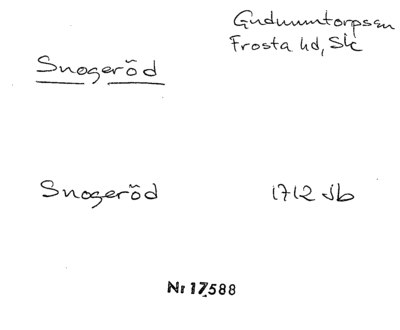 Gudmuntorpsn
Frosta hd, Sk
Snogeröd
Snogeröd 1712 Jb
Nr 17588